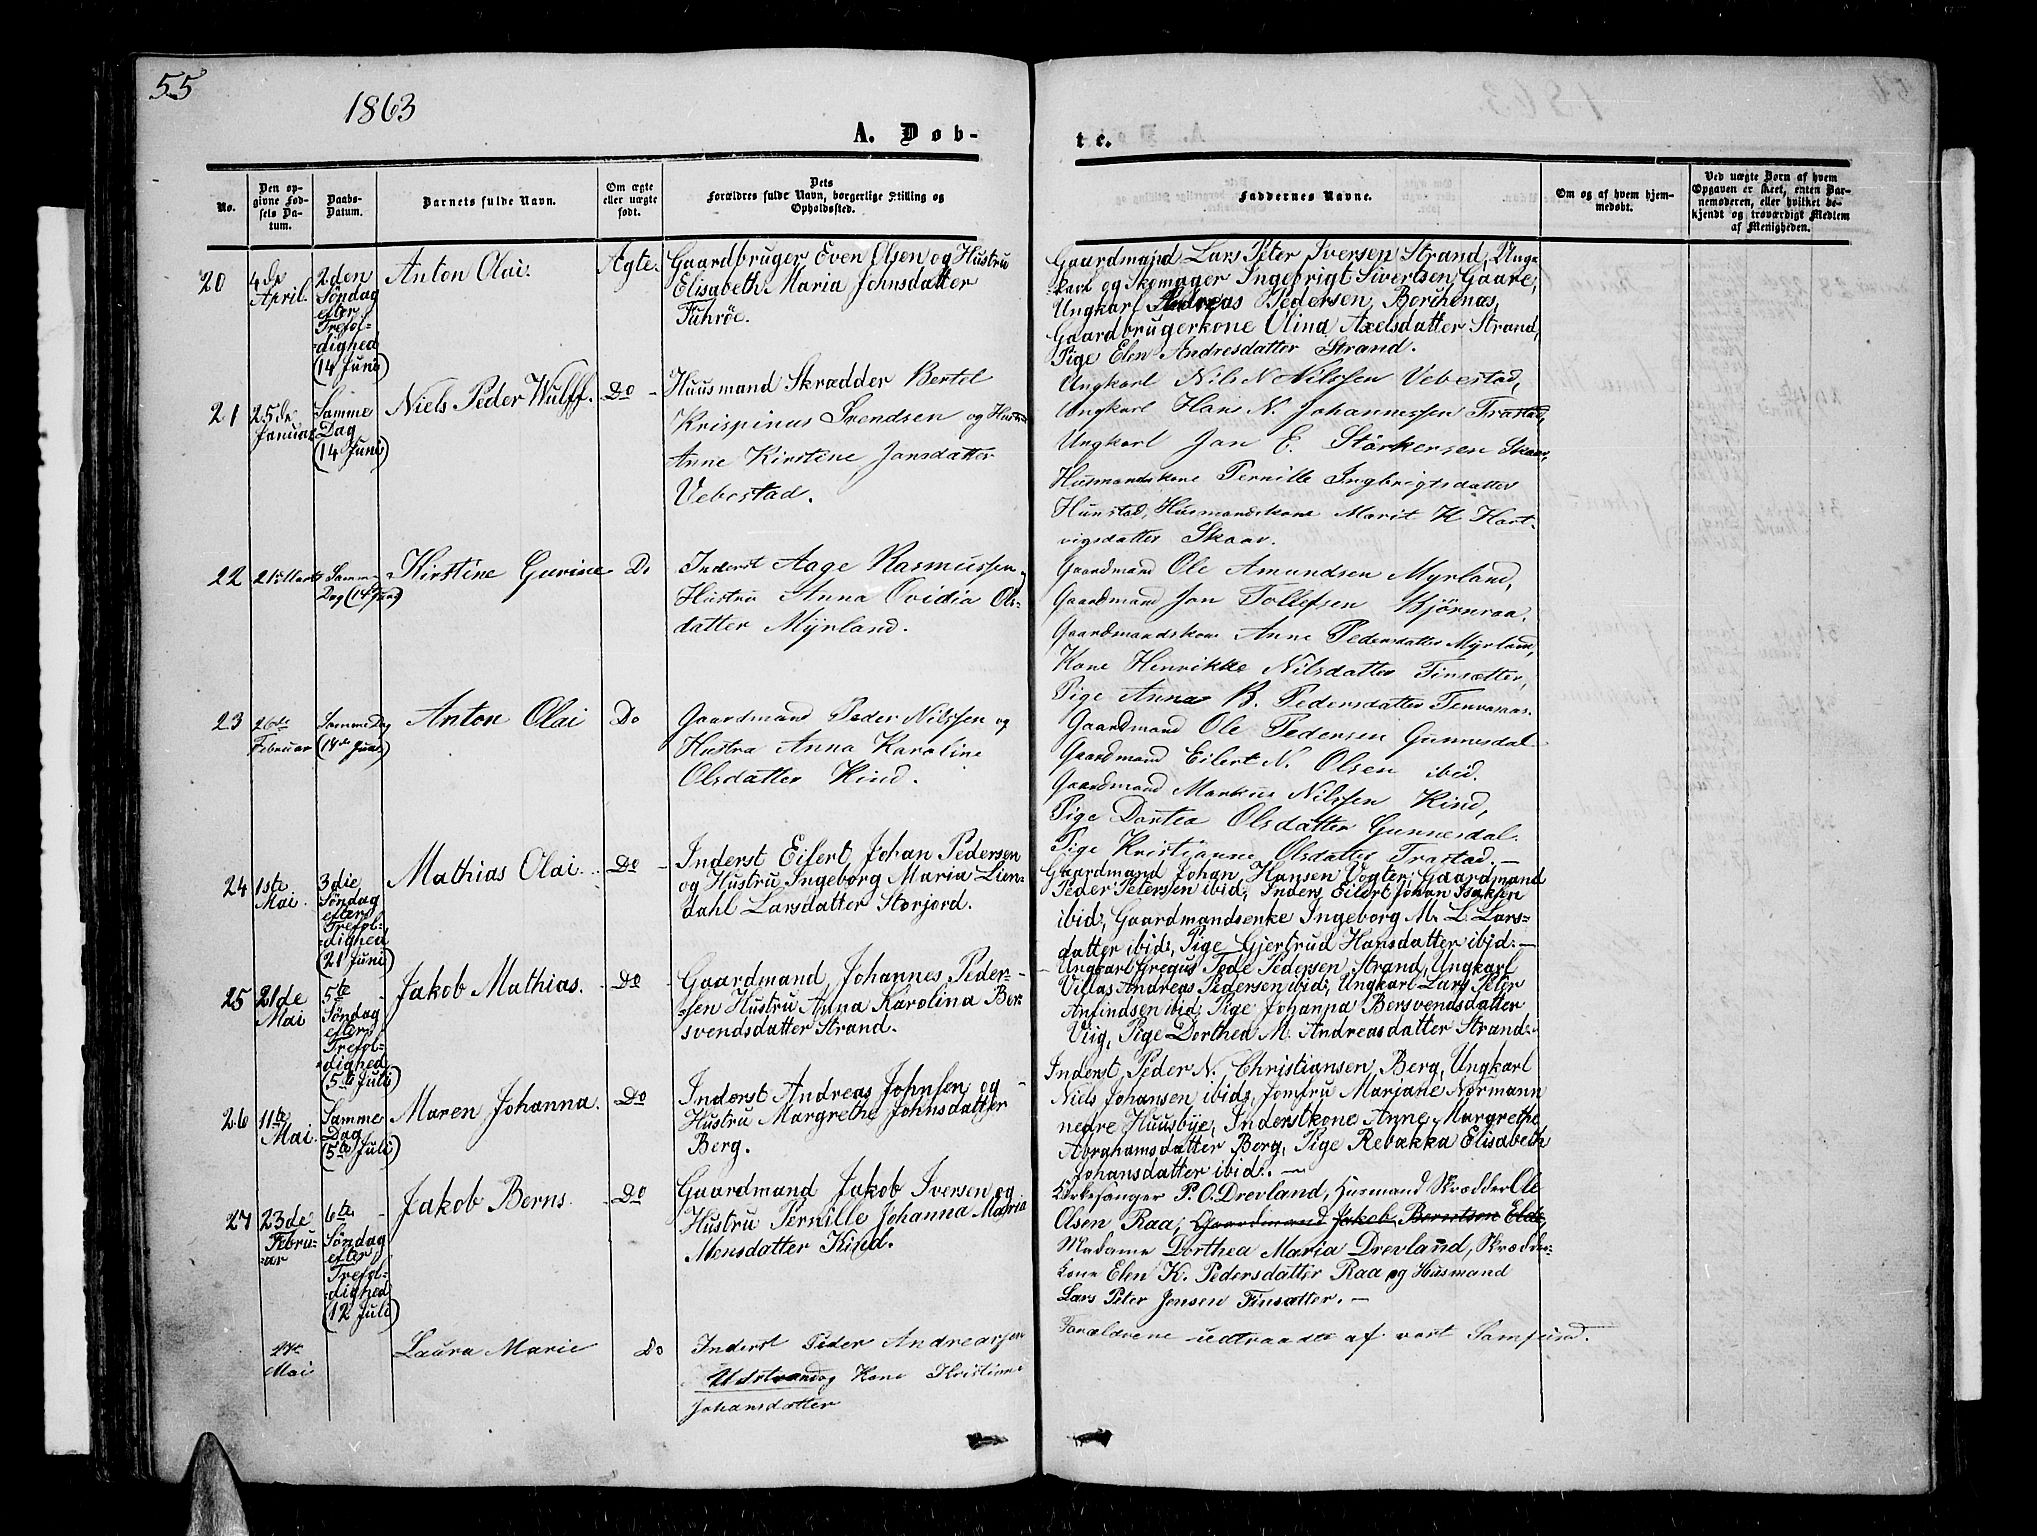 55
1863
A. Døb-
te.
No.
Den op-
givne Fød-
sels Da-
tum.
Daabs-
Datum.
Barnets fulde Navn.
Om ægte
eller uægte
født.
Dets
Forældres fulde Navn, borgerlige Stilling og
Opholdssted.
Faddernes Navne.
Om og af hvem hjem-
medøbt.
Ved uægte Børn af hvem
Opgaven er skeet, enten Bar-
nemoderen, eller hvilket be-
kjendt og troværdigt Medlem
af Menigheden.
20
4de
April.
2den
Søndag
efter
Trefol-
dighed
(14 Juni)
Anton Olai.
Ægte.
Gaardbruger Even Olsen og Hustru
Elisabeth Maria Johnsdatter
Fuhrøe.
Gaardmand Lars Peter Iversen Strand, Ung-
karl og Skomager Ingebrigt Sivertsen Gaare,
Ungkarl Andreas Pedersen, Borchenæs,
Gaardbrugerkone Olina Axelsdatter Strand,
Pige Elen Andresdatter Strand.
21
25de
Januar
Samme
Dag
(14 Juni)
Niels Peder Wulff.
Do
Huusmand Skrædder Bertel
Krispinus Svendsen og Hustru
Anne Kirstine Jonsdatter
Vebostad.
Ungkarl Nils N Nilssen Vebostad,
Ungkarl Hans N. Johannessen Trastad,
Ungkarl Jon E. Störkersen Skaar,
Husmandskone Pernille Ingbrigtsdatter
Hunstad, Husmandskone Marit K Hart-
vigsdatter Skaar.
22
21 Marts
Samme
Dag (14 Juni)
Kirstine Gurine
Do
Inderst Aage Rasmussen
Hustru Anna Ovidia Ols-
datter Myrland.
Gaardmand Ole Amundsen Myrland,
Gaardmand Jon Tollefsen Bjørnraa.
Gaardmandskone Anne Pedersdatter Myrland,
Kone Henrikke Nilsdatter Finsætter,
Pige Anna B. Pedersdatter
23
26de
Februar
Samme Dag
(14de Juni)
Anton Olai
Do
Gaardmand Peder Nilssen og
Hustru Anna Karoline
Olsdatter Kind.
Gaardmand Ole Pedersen Gunnesdal
Gaardmand Eilert N. Olsen ibid.
Gaardmand Markus Nilssen Kind,
Pige Dortea Olsdatter Gunnesdal.
Pige Kristianne Olsdatter Trastad. —
24
1ste
Mai.
3die
Søndag
efter
Trefol-
dighed
(21 Juni)
Mathias Olai.
Do
Inderst Eilert Johan Pedersen
og Hustru Ingeborg Maria Lien-
dahl Larsdatter Storjord.
Gaardmand Johan Hansen Vogter, Gaardmand
Peder Petersen ibid., Inders. Eilert Johan Isaksen
ibid., Gaardmandsenke Ingeborg M. L. Lars-
datter ibid., Pige Gjertrud Hansdatter ibid. —
25
21de
Mai
5te
Søndag
efter
Trefol-
dighed
(5te Juli)
Jakob Mathias.
Do
Gaardmand Johannes Peder-
sen Hustru Anna Karolina Ber-
svendsdatter Strand.
Ungkarl Gregus Tede Pedersen Strand, Ungkarl
Villas Andreas Pedersen ibid., Ungkarl Lars Peter
Anfindsen ibid. Pige Johanna Bersvendsdatter
Viig, Pige Dorthea M. Andreasdatter Strand.
26
11te
Mai.
Samme
Dag
(5te Juli)
Maren Johanna.
Do
Inderst Andreas Johnsen og
Hustru Margrethe Johnsdatter
Berg.
Inderst Peder N. Christiansen, Berg, Ungkarl
Niels Johansen ibid., Jomfru Marjane Normann
nedre Huusbye, Inderstkone Anne Margrethe
Abrahamsdatter Berg, Pige Rebækka Elisabeth
Johansdatter ibid. —
27
23de
Febru-
ar
6te
Søndag
efter
Trefol-
dighed
(12 Juli)
Jakob Berns.
Do
Gaardmand Jakob Iversen og
Hustru Pernille Johanna Maria
Monsdatter Kind.
Kirkesanger P. O. Drevland, Husmand Skrædder Ole
Olsen Raa, Gaardmand Jakob Berntsen Elde,
Madame Dorthea Maria Drevland, Skrædder-
kone Elen K. Pedersdatter Raa og Husmand
Lars Peter Jensen Finsætter. —
27de
Mai
Laura Marie
Do
Inderst Peder Andreassen
Udstrand og Kone Kristiane
Johansdatter
Forældrene udtraadte af vort Samfund.